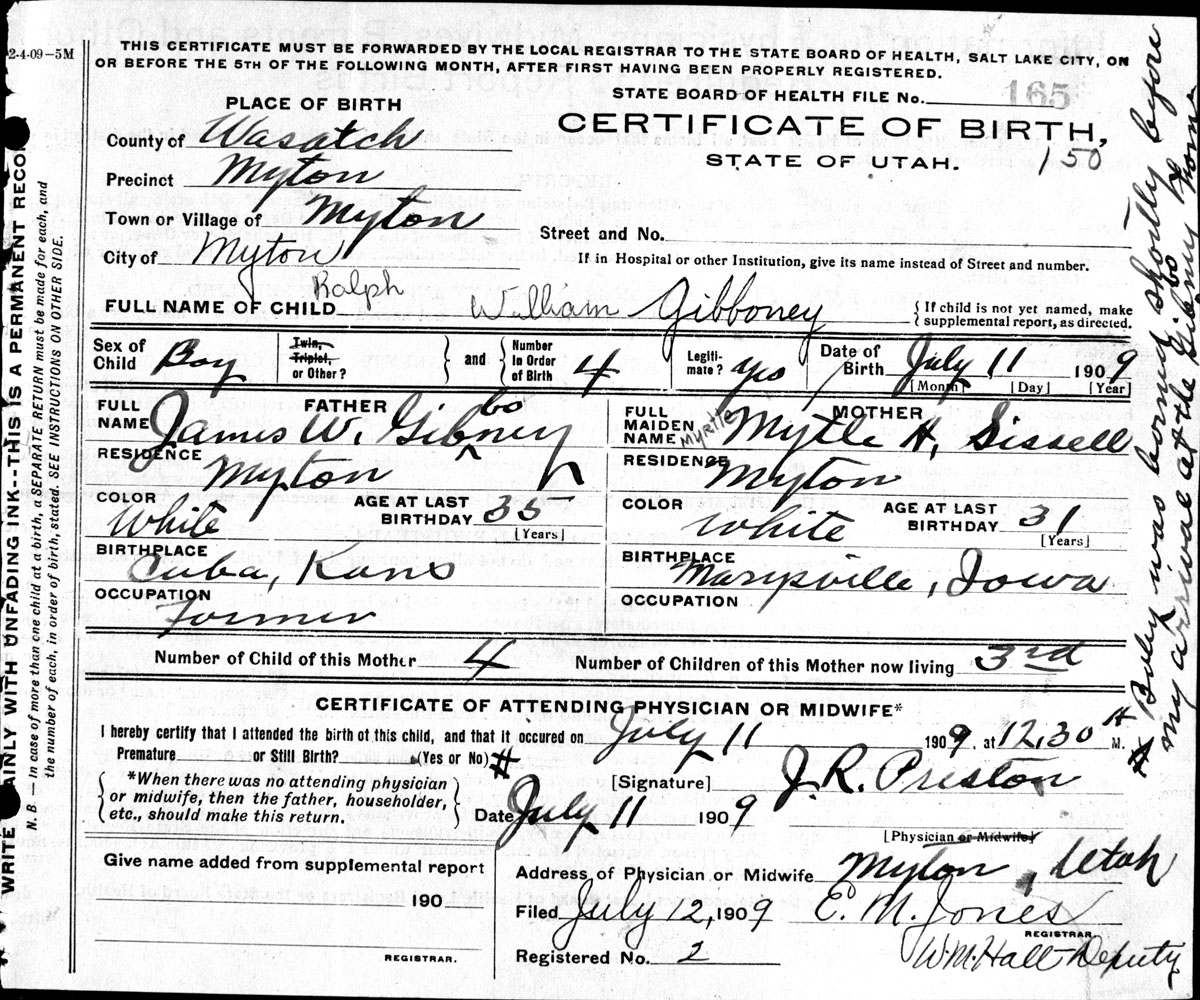 2-4-09—5M
THIS CERTIFICATE MUST BE FORWARDED BY THE LOCAL REGISTRAR TO THE STATE BOARD OF HEALTH, SALT LAKE CITY, ON
OR BEFORE THE 5TH OF THE FOLLOWING MONTH, AFTER FIRST HAVING BEEN PROPERLY REGISTERED.
STATE BOARD OF HEALTH FILE No. 165
PLACE OF BIRTH
CERTIFICATE OF BIRTH,
STATE OF UTAH. 150
County of Wasatch
Precinct Myton
Town or Village of Myton
Street and No.
City of Myton
If in Hospital or other Institution, give its name instead of Street and number.
Ralph
FULL NAME OF CHILD William Gibboney
{ If child is not yet named, make
supplemental report, as directed.
Sex of Child Boy
Twin, Triplet, or Other?
and
Number In Order of Birth 4
Legitimate? yes
Date of Birth July 11 1909
[Month] [Day] [Year]
FATHER
FULL NAME James W. Gibney
bo
RESIDENCE Myton
COLOR White
AGE AT LAST BIRTHDAY 35
[Years]
BIRTHPLACE Cuba, Kans
OCCUPATION Farmer
MOTHER
FULL MAIDEN NAME Myrtle Myrtle H. Sissell
RESIDENCE Myton
COLOR White
AGE AT LAST BIRTHDAY 31
[Years]
BIRTHPLACE Marysville, Iowa
OCCUPATION
Number of Child of this Mother 4
Number of Children of this Mother now living 3rd
CERTIFICATE OF ATTENDING PHYSICIAN OR MIDWIFE*
I hereby certify that I attended the birth of this child, and that it occured on July 11 1909, at 12,30 A M.
Premature or Still Birth? (Yes or No) #
{ *When there was no attending physician
or midwife, then the father, householder,
etc., should make this return. }
[Signature] J. R. Preston
Date July 11 1909
[Physician or Midwife]
Give name added from supplemental report
190
REGISTRAR.
Address of Physician or Midwife Myton, Utah
Filed July 12, 1909 E. M. Jones
REGISTRAR
Registered No. 2 W.M. Hall Deputy
WRITE AINLY WITH UNFADING INK--THIS IS A PERMANENT RECO
N. B.—In case of more than one child at a birth, a SEPARATE RETURN must be made for each, and
the number of each, in order of birth, stated. SEE INSTRUCTIONS ON OTHER SIDE.
# Baby was borning shortly before
my arrival at the Gibney home
bo